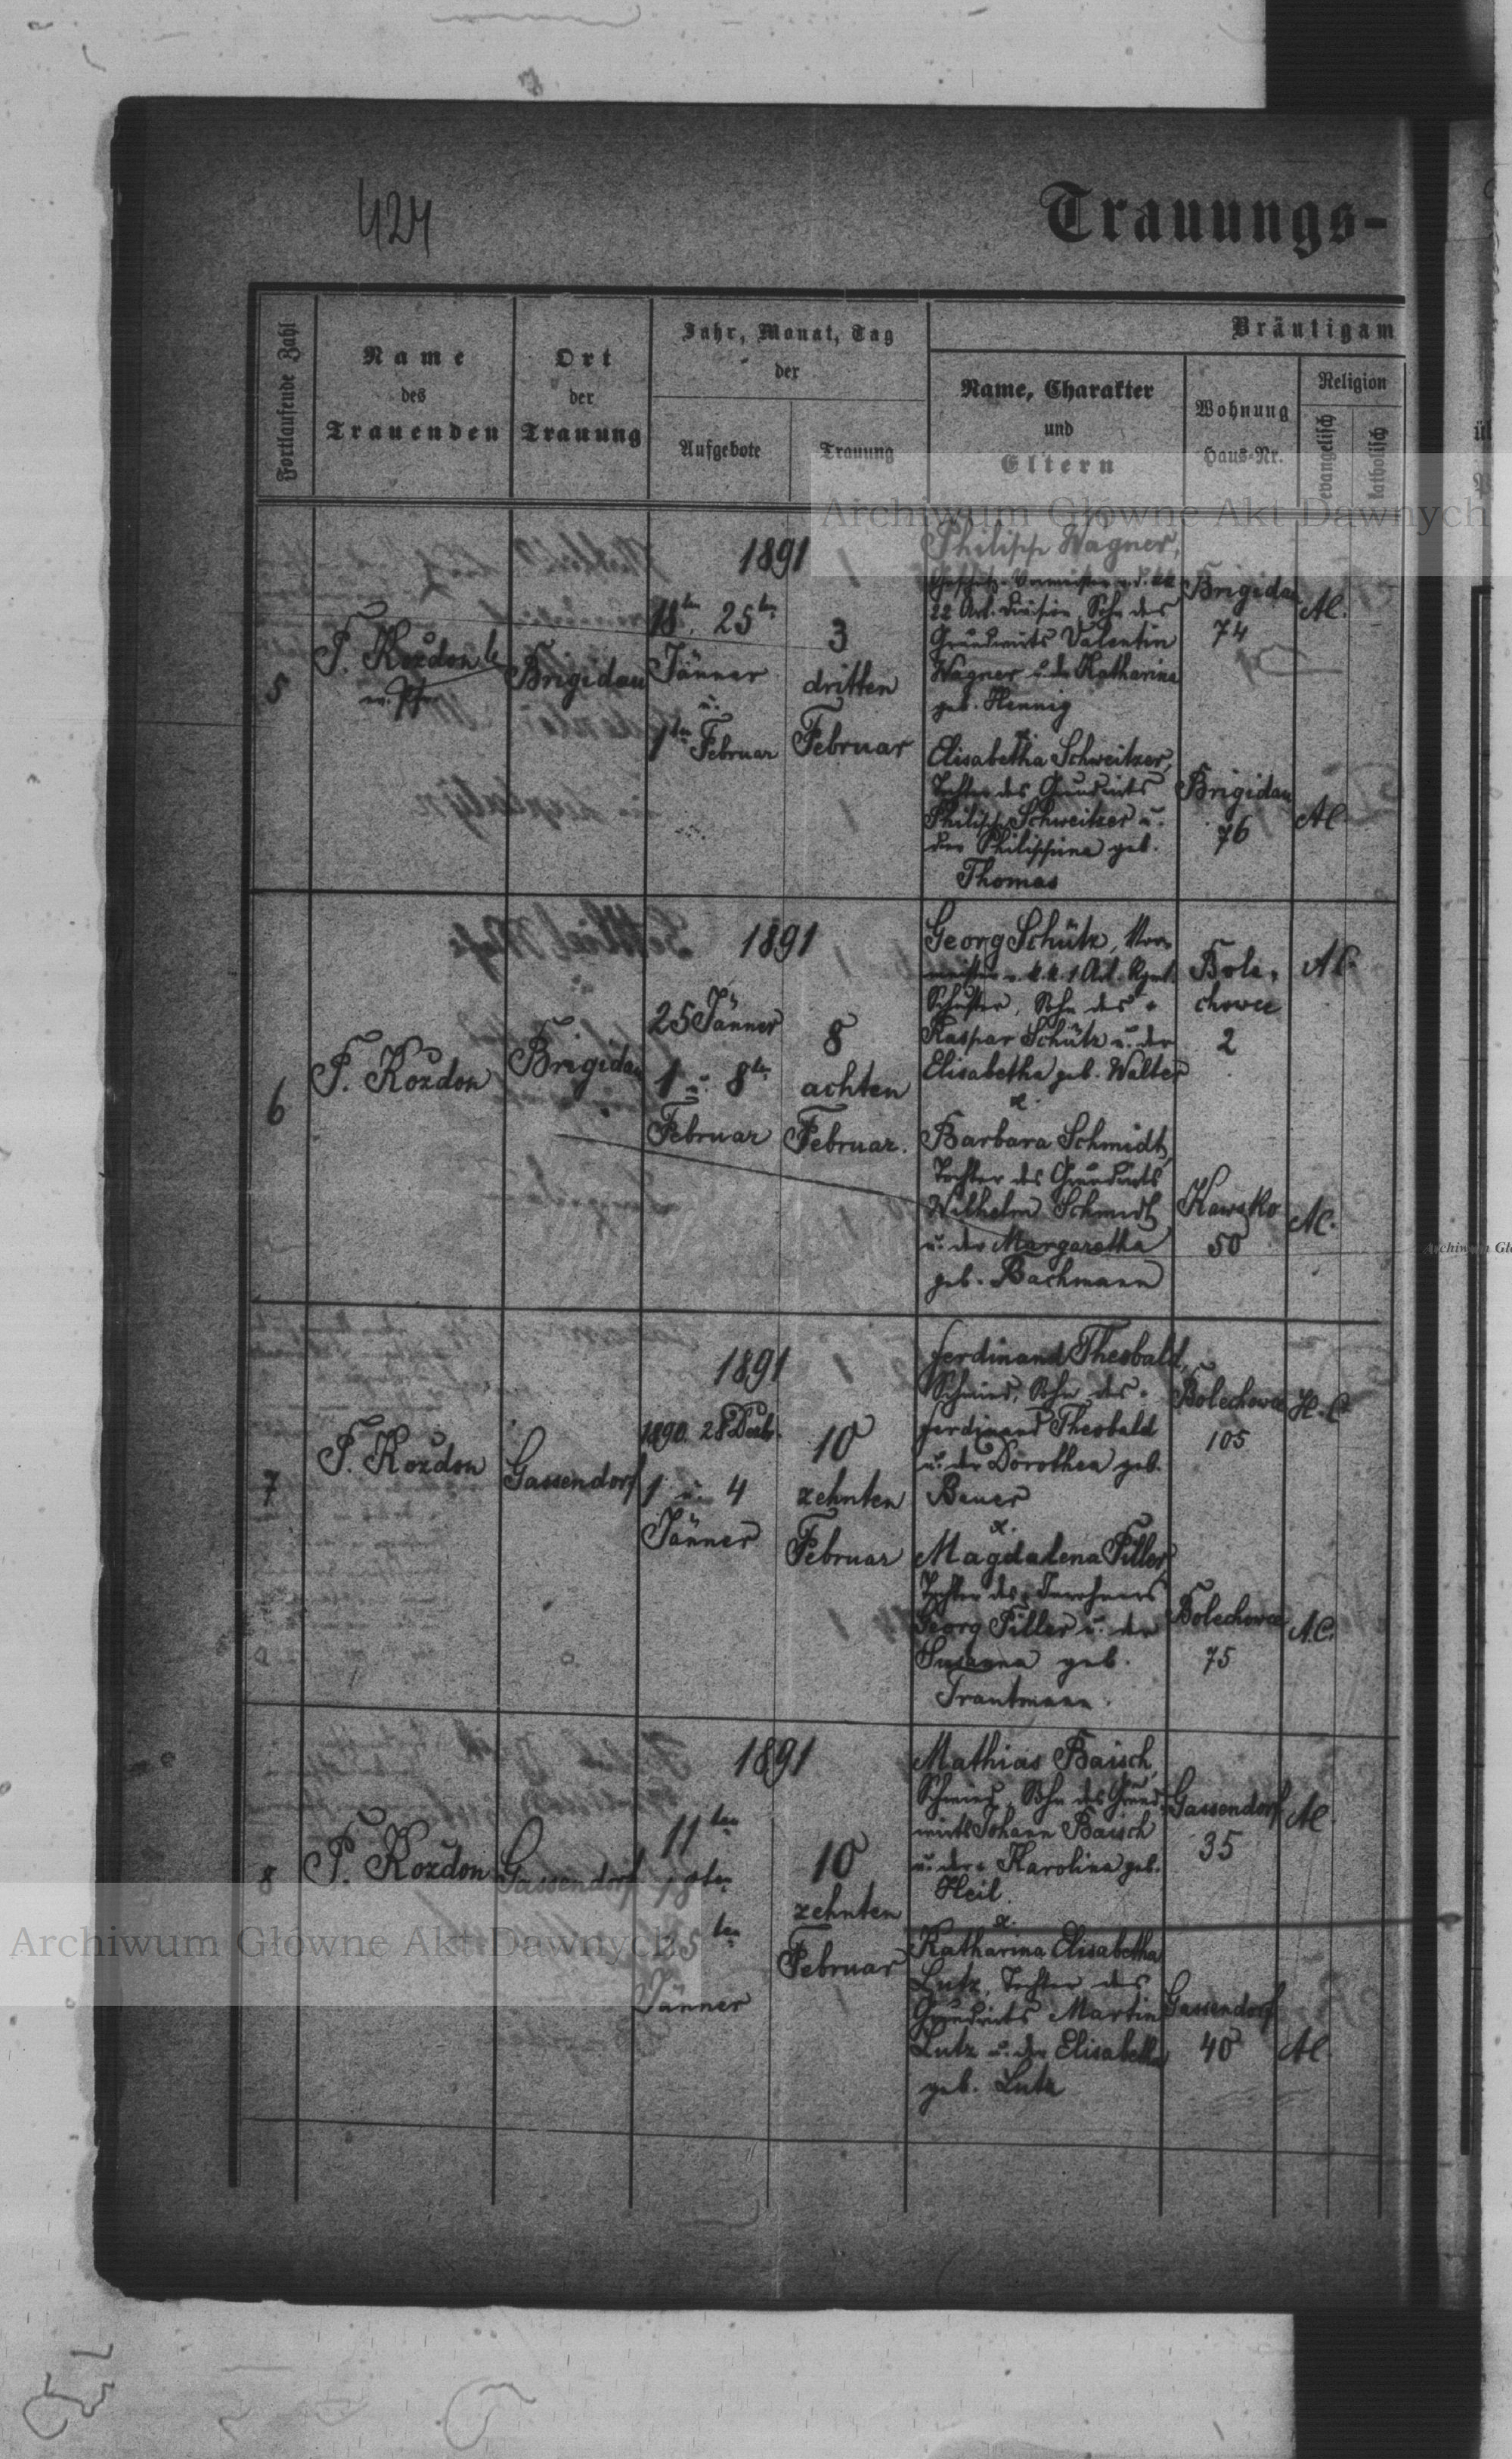 424
Trauungs-
Fortlaufende Zahl
Name
des
Trauenden
Ort
der
Trauung
Jahr, Monat, Tag
der
Aufgebote
Trauung
Bräutigam
Name, Charakter
und
Eltern
Wohnung
Haus-Nr.
Religion
evangelisch
katholisch
Archiwum Główne Akt Dawnych
5
P. Kozdon
Brigidau
1891
18ten, 25ten
Jänner
u.
1ten Februar
3
dritten
Februar
Philipp Wagner,
22 Art. Division, Sohn des
Grundwirts Valentin
Wagner u. der Katharina
geb. Hennig
Brigidau
74
AC.
Elisabetha Schweitzer,
Tochter des Grundwirts
Philipp Schweitzer u.
der Philippina geb.
Thomas
Brigidau
76
AC
6
P. Kozdon
Brigidau
1891
25 Jänner
1 u. 8ten
Februar
8
achten
Februar.
Georg Schütz, Vor-
meister v. k.k. 1 Art. Rgmt.
Schuster, Sohn des
Kaspar Schütz u. der
Elisabetha geb. Walter
Bole-
chowce
2
AC.
Barbara Schmidt,
Tochter des Grundwirts
Wilhelm Schmidt
u. der Margaretha
geb. Bachmann
Kawsko
50
AC.
7
P. Kozdon
Gassendorf
1891
1890. 28 Decb.
1 u. 4
Jänner
10
zehnten
Februar
Ferdinand Theobald,
Schmied, Sohn des
Ferdinand Theobald
u. der Dorothea geb.
Bauer
Bolechowce
105
H.C.
Magdalena Piller,
Tochter des Inwohners
Georg Piller u. der
Susanna geb.
Trautmann.
Bolechowce
75
A.C.
8
P. Kozdon
Gassendorf
1891
11ten
18ten
25ten
Jänner
10
zehnten
Februar
Mathias Baisch,
Schmied, Sohn des Grund-
wirts Johann Baisch
u. der Karolina geb.
Heil.
Gassendorf
35
AC.
Katharina Elisabetha
Lutz, Tochter des
Grundwirts Martin
Lutz u. der Elisabetha
geb. Lutz
Gassendorf
40
AC.
Archiwum Główne Akt Dawnych